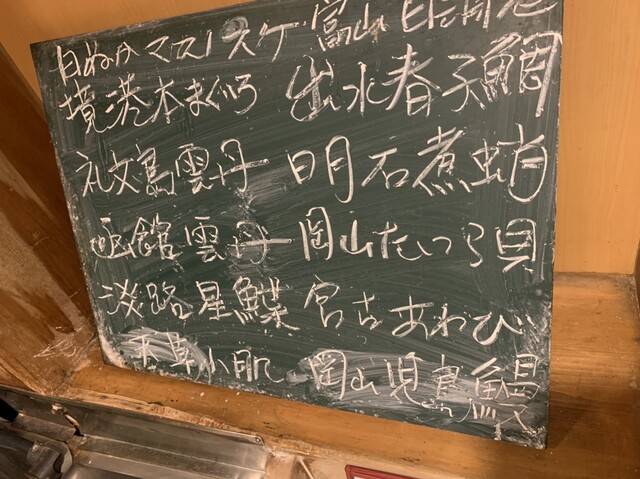 マスノスケ 富山
境港本まぐろ 出水春子鯛
礼文島雲丹 明石煮蛸
函館雲丹 岡山たいらぎ貝
淡路星鰈 宮古あわび
天草小肌 岡山児島鰻